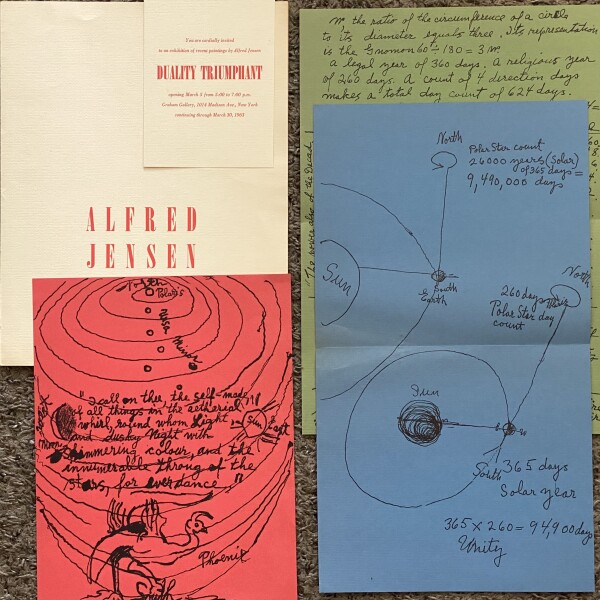 You are cordially invited
to an exhibition of recent paintings by Alfred Jensen
DUALITY TRIUMPHANT
opening March 5 from 5:00 to 7:00 p.m.
Graham Gallery, 1014 Madison Ave., New York
continuing through March 30, 1963
ALFRED
JENSEN
the ratio of the circumference of a circle
to its diameter equals three. Its representation
is the Gnomon 60° ÷ 180 = 3
a legal year of 360 days. A religious year
of 260 days. A count of 4 direction days
makes a total day count of 624 days.
North
Polar Star count
26000 years (Solar)
of 365 days =
9,490,000 days
Sun
South
Earth
North
260 days
Polar Star day
count
Sun
South
365 days
Solar year
365 x 260 = 94,900 days
Unity
North
Polaris
Ursa Minor
"I call on thee, the self-made
of all things in the aetherial
whirl, round whom Light
and dusky Night with
shimmering colour, and the
innumerable throng of the
stars, for ever dance"
Sun
East
Moon
Phoenix
South